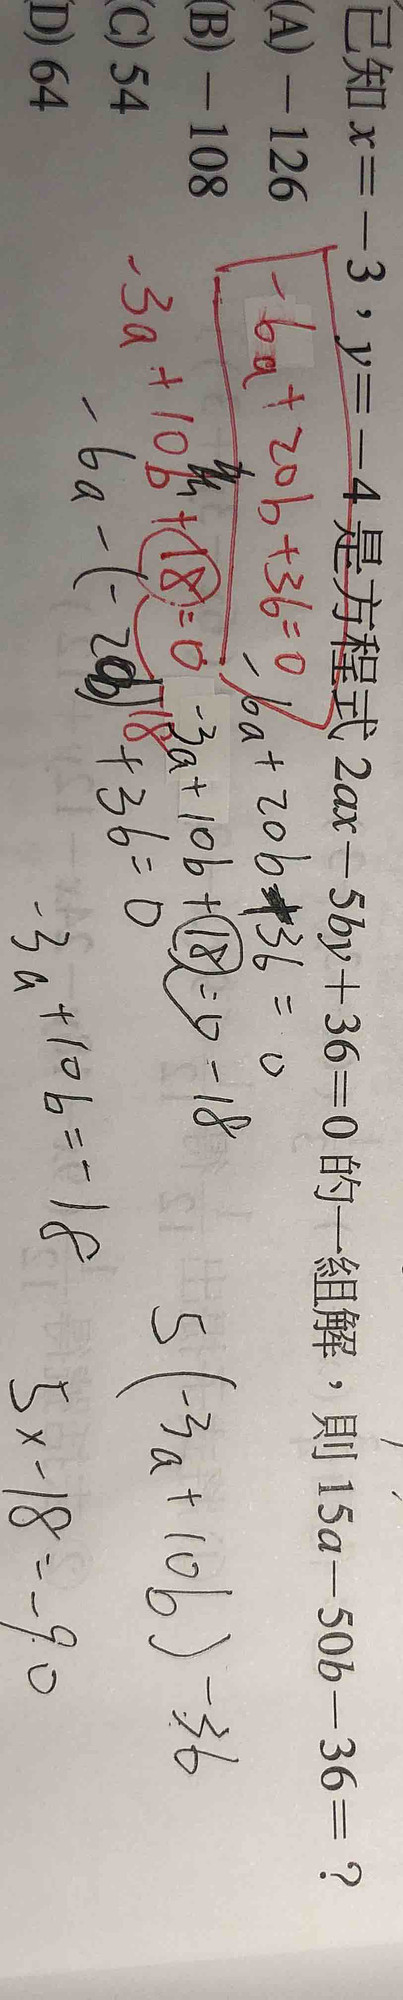 已知 x=-3,y=-4是方程式 2ax-5by+36=0 的一組解,則 15a-50b-36=?
(A) -126
(B) -108
(C) 54
(D) 64
-6a+20b+36=0
-3a+10b+18=0
-6a-(-20b)+36=0
18
-6a+20b+36=0
-3a+10b+18=0-18
-3a+10b=-18
5(-3a+10b)-36
5x-18=-90